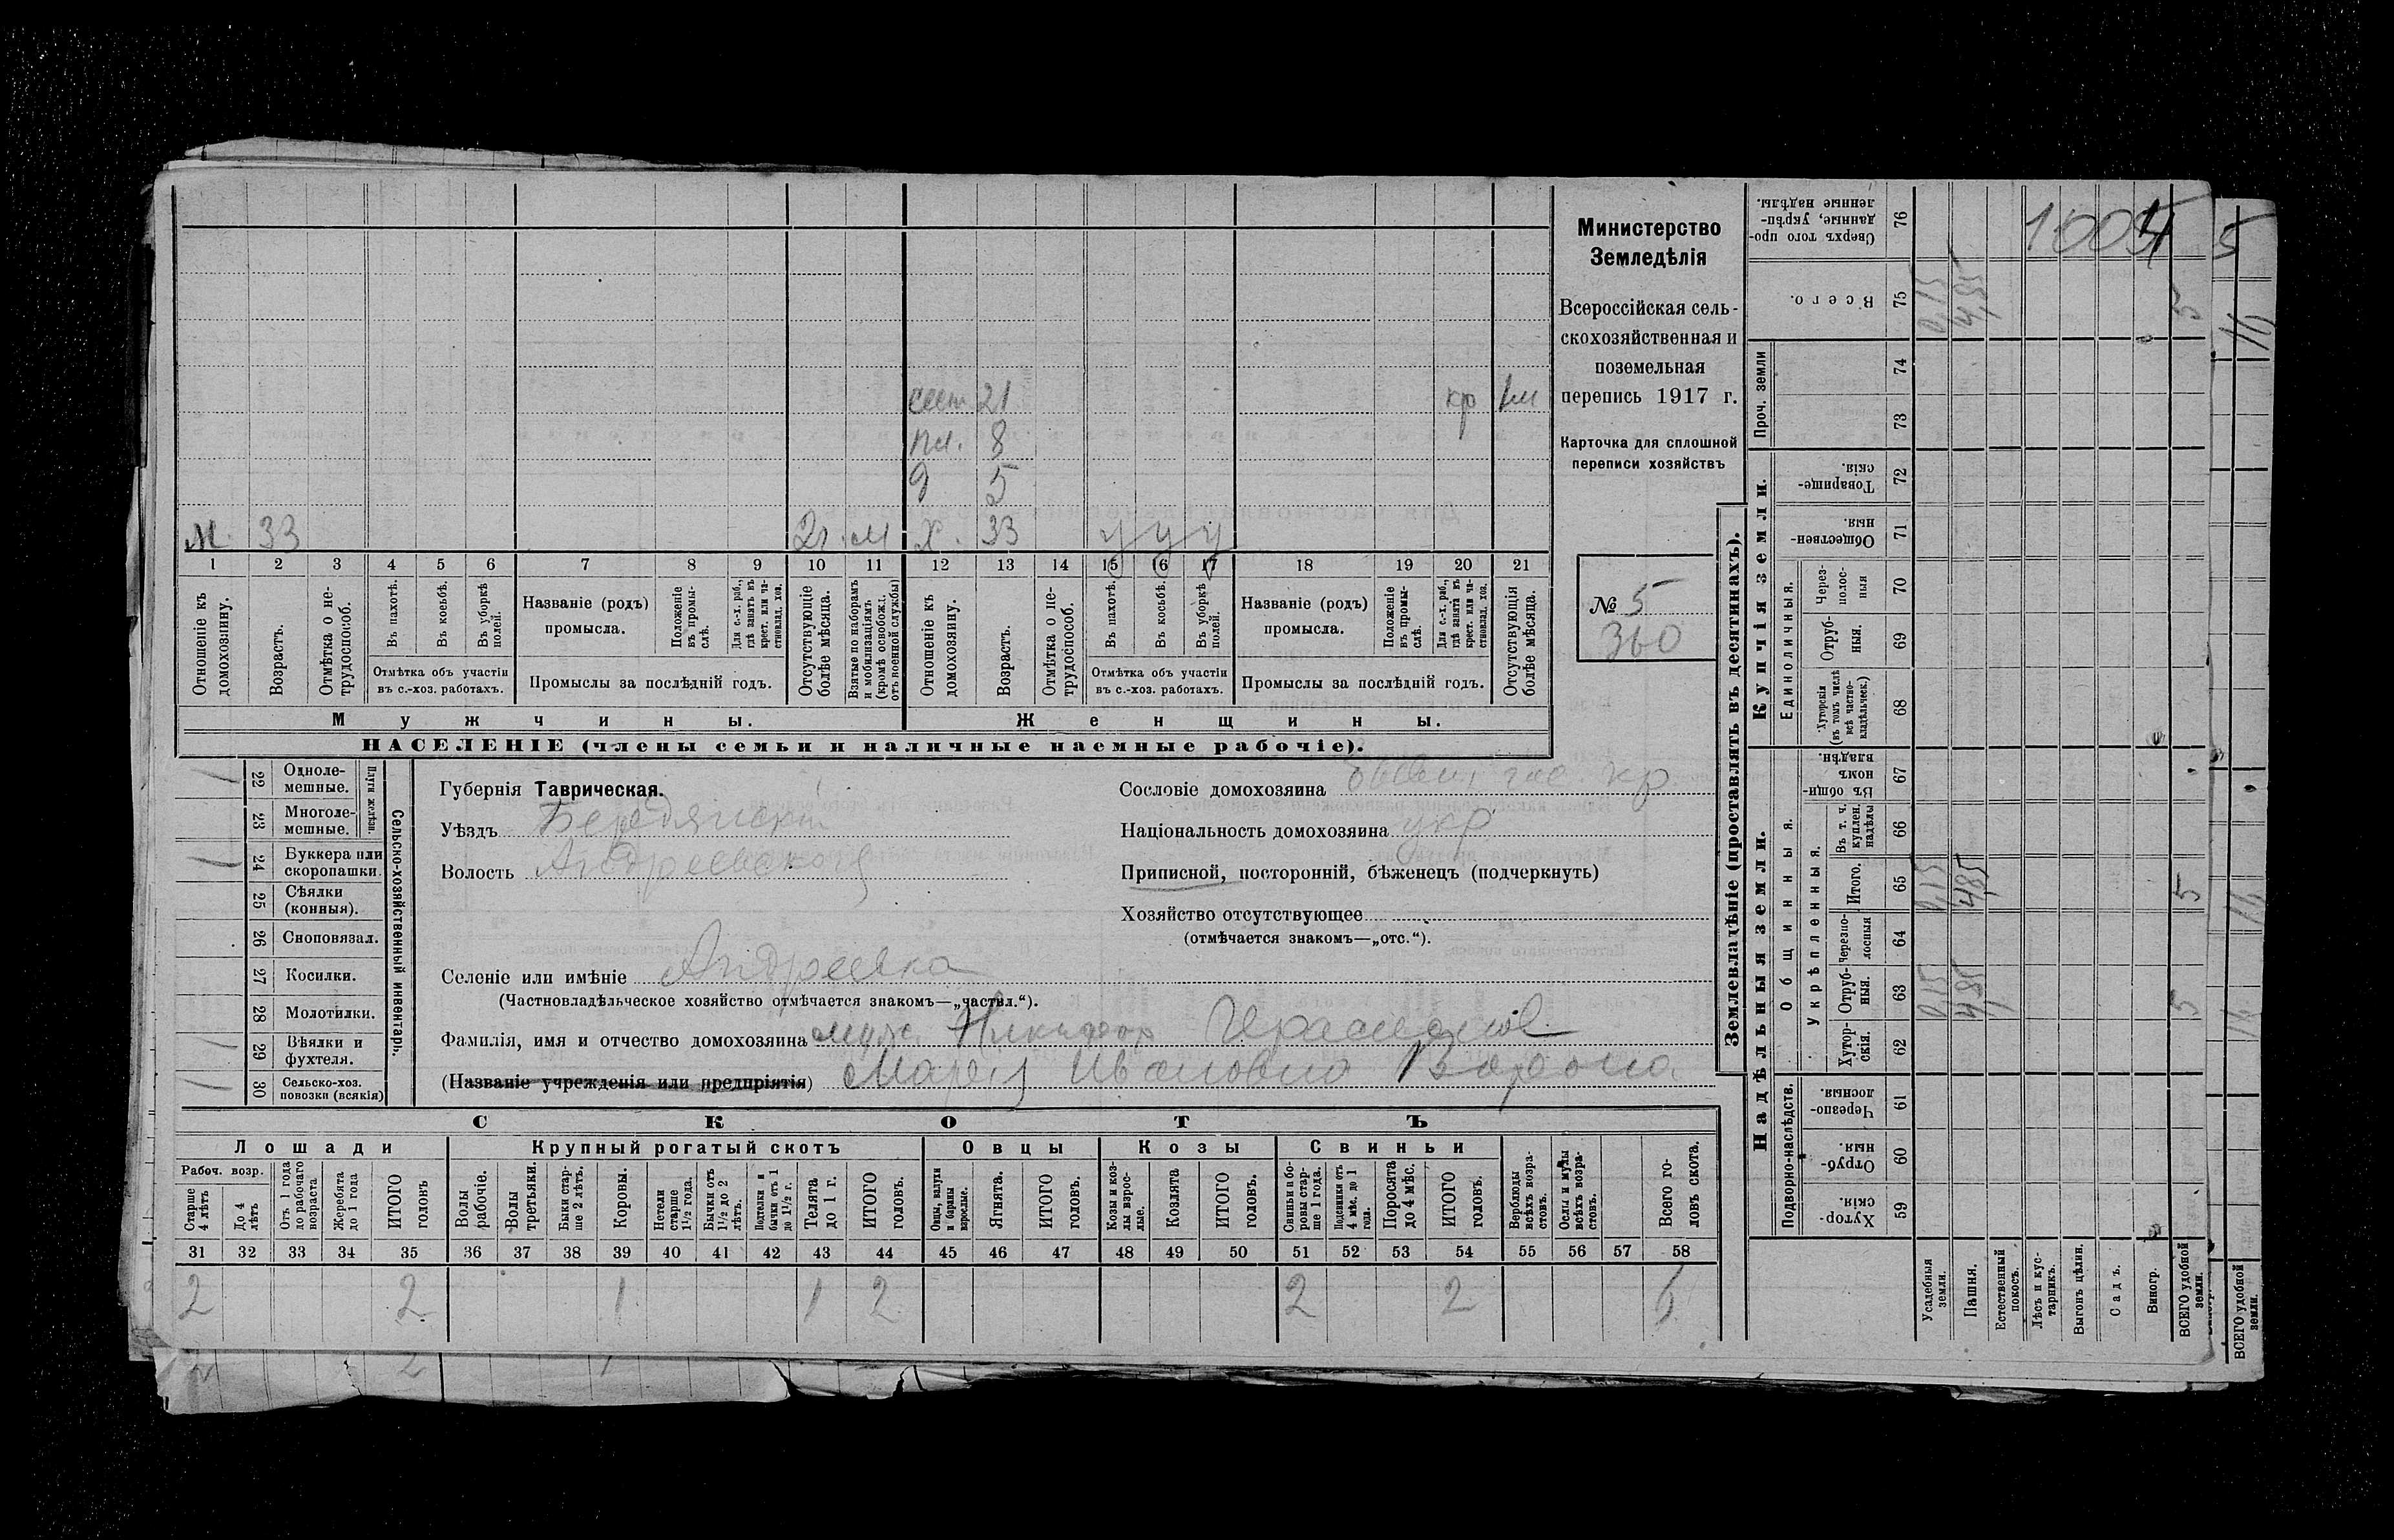 сест 21 кр 1м
пл. 8
д 5
м. 33 2г. м х. 33 у у у
1 2 3 4 5 6 7 8 9 10 11 12 13 14 15 16 17 18 19 20 21
Отношеніе къ домохозяину.
Возрастъ.
Отмѣтка о нетрудоспособ.
Въ пахотѣ.
Въ косьбѣ.
Въ уборкѣ полей.
Отмѣтка объ участіи
въ с.-хоз. работахъ.
Названіе (родъ)
промысла.
Положеніе въ промыслѣ.
Для с.-х. раб., гдѣ занятъ въ крест. или частновлад. хоз.
Промыслы за послѣдній годъ.
Отсутствующіе болѣе мѣсяца.
Взятые по наборамъ и мобилизаціямъ (кромѣ освобожд. отъ военной службы)
Отношеніе къ домохозяину.
Возрастъ.
Отмѣтка о нетрудоспособ.
Въ пахотѣ.
Въ косьбѣ.
Въ уборкѣ полей.
Отмѣтка объ участіи
въ с.-хоз. работахъ.
Названіе (родъ)
промысла.
Положеніе въ промыслѣ.
Для с.-х. раб., гдѣ занята въ крест. или частновлад. хоз.
Промыслы за послѣдній годъ.
Отсутствующія болѣе мѣсяца.
Мужчины. Женщины.
НАСЕЛЕНІЕ (члены семьи и наличные наемные рабочіе).
Министерство
Земледѣлія
Всероссійская сель-
скохозяйственная и
поземельная
перепись 1917 г.
Карточка для сплошной
переписи хозяйствъ
№ 5
360
22 Одноле-
мешные.
23 Многоле-
мешные.
Плуги желѣзн.
24 Буккера или
скоропашки.
25 Сѣялки
(конныя).
26 Сноповязал.
27 Косилки.
28 Молотилки.
29 Вѣялки и
фухтеля.
30 Сельско-хоз.
повозки (всякія)
Сельско-хозяйственный инвентарь.
Губернія Таврическая.
Уѣздъ Бердянскій
Волость Андреевская
Селеніе или имѣніе Андреевка
(Частновладѣльческое хозяйство отмѣчается знакомъ—„частвл.“).
Сословіе домохозяина
кр
Національность домохозяина укр
Приписной, посторонній, бѣженецъ (подчеркнуть)
Хозяйство отсутствующее
(отмѣчается знакомъ—„отс.“).
Фамилія, имя и отчество домохозяина муж. Никифор Герасимов.
(Названіе учрежденія или предпріятія) Мария Ивановна Ворона
СКОТЪ
Лошади Крупный рогатый скотъ Овцы Козы Свиньи
Рабоч. возр.
Старше 4 лѣтъ
До 4 лѣтъ
Отъ 1 года до рабочаго возраста
Жеребята до 1 года
ИТОГО головъ
Волы рабочіе.
Волы третьяки.
Быки старше 2 лѣтъ.
Коровы.
Нетели старше 1½ года.
Бычки отъ 1½ до 2 лѣтъ.
Подтелки и бычки отъ 1 до 1½ г.
Телята до 1 г.
ИТОГО головъ.
Овцы, валухи и бараны взрослые.
Ягнята.
ИТОГО головъ.
Козы и козлы взрослые.
Козлята
ИТОГО головъ.
Свиньи и боровы старше 1 года.
Подсвинки отъ 4 мѣс. до 1 года.
Поросята до 4 мѣс.
ИТОГО головъ.
Верблюды всѣхъ возрастовъ.
Ослы и мулы всѣхъ возрастовъ.
Всего головъ скота.
31 32 33 34 35 36 37 38 39 40 41 42 43 44 45 46 47 48 49 50 51 52 53 54 55 56 57 58
2 2 1 1 2 2 2 6
Землевладѣніе (проставлять въ десятинахъ).
Надѣльныя земли. Купчія земли.
Подворно-наслѣдств.
Общинныя.
Укрѣпленныя.
Единоличныя.
Проч. земли
Хутор-
скія. 59
Отруб-
ныя. 60
Черезпо-
лосныя. 61
Хутор-
скія. 62
Отруб-
ныя. 63 0,15 4,85 5
Черезпо-
лосныя 64
Итого. 65 0,15 4,85 5
Въ т. ч. куплен. надѣлы 66
Въ общи-
номъ
владѣн. 67
Хуторскія (въ томъ числѣ всѣ частновладѣльческ.) 68
Отруб-
ныя. 69
Через-
полос-
ныя 70
Обществен-
ныя. 71
Товарище-
скія. 72
73
74
Всего. 75 0,15 4,85 5
Сверхъ того про-
данные, укрѣп-
ленные надѣлы. 76
Усадебныя земли.
Пашня.
Естественный покосъ.
Лѣсъ и кустарникъ.
Выгонъ цѣлин.
Садъ.
Виногр.
ВСЕГО удобной земли.
ВСЕГО удобной земли.